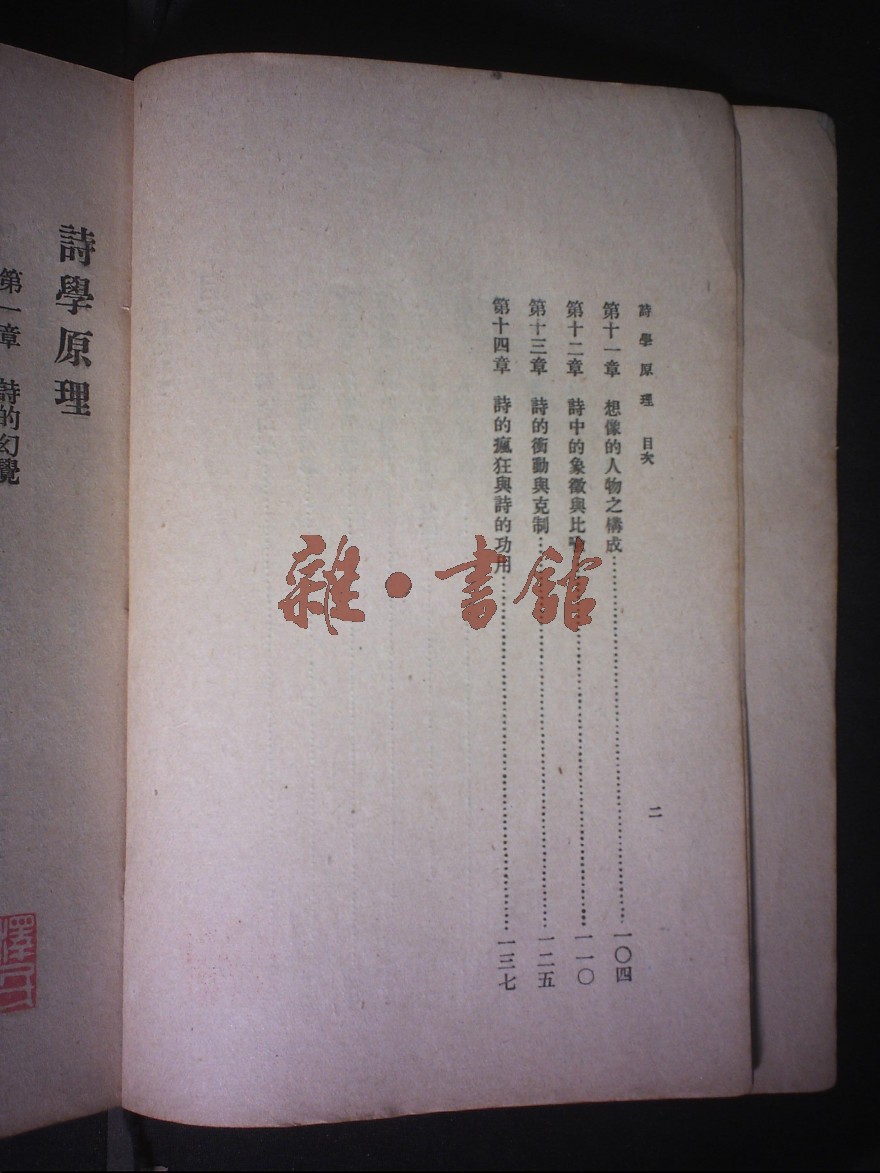 詩學原理 目次
二
第十一章 想像的人物之構成…………一〇四
第十二章 詩中的象徵與比喻…………一一〇
第十三章 詩的衝動與克制…………一二五
第十四章 詩的瘋狂與詩的功用…………一三七
雜·書館
詩學原理
第一章 詩的幻覺